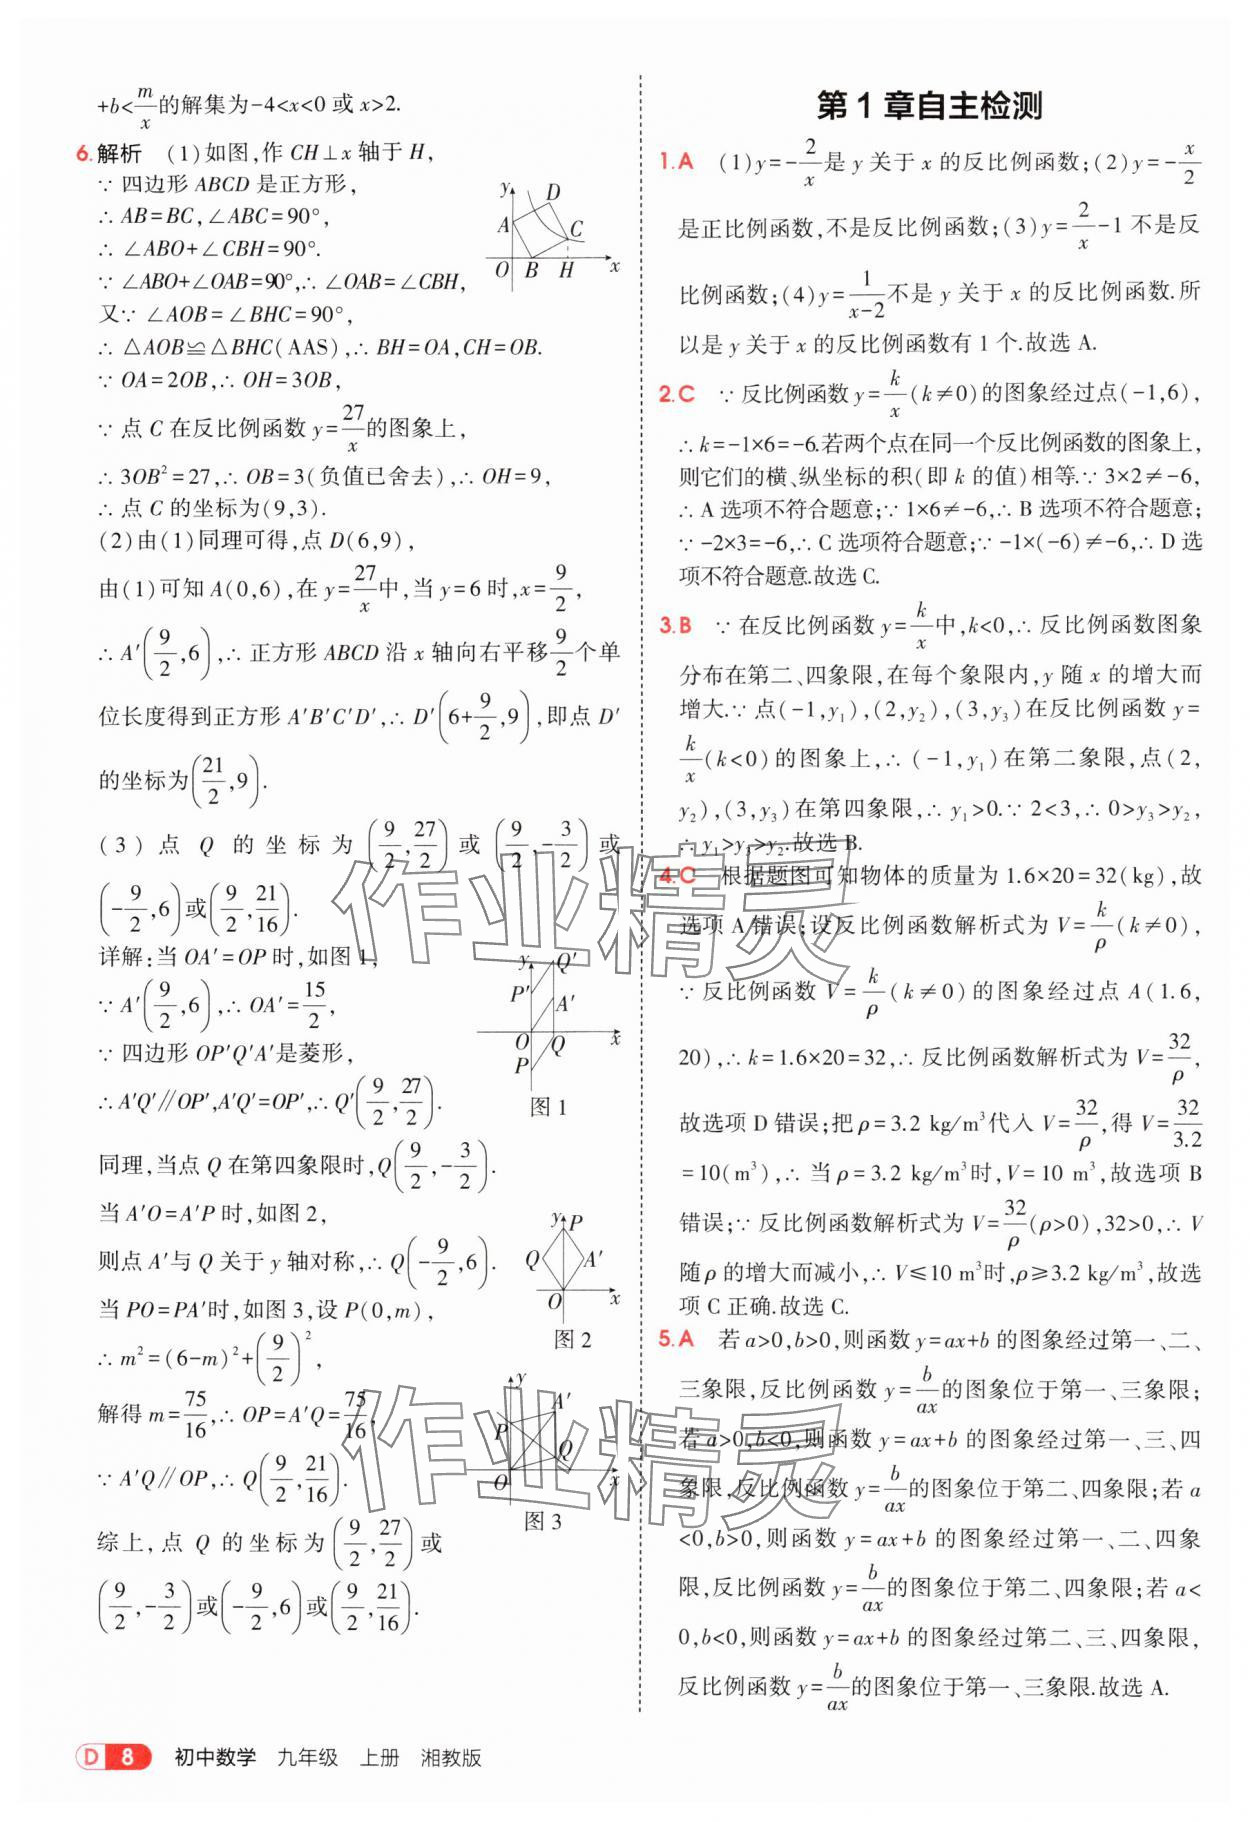 +b<m/x的解集为-4<x<0 或 x>2.
6.解析 (1)如图,作 CH⊥x 轴于 H,
∵ 四边形 ABCD 是正方形,
∴ AB=BC,∠ABC=90°,
∴ ∠ABO+∠CBH=90°.
∵ ∠ABO+∠OAB=90°,∴ ∠OAB=∠CBH,
又∵ ∠AOB=∠BHC=90°,
∴ △AOB≌△BHC(AAS),∴ BH=OA,CH=OB.
∵ OA=2OB,∴ OH=3OB,
∵ 点 C 在反比例函数 y=27/x的图象上,
∴ 3OB²=27,∴ OB=3(负值已舍去),∴ OH=9,
∴ 点 C 的坐标为(9,3).
y
D
A
C
O B H x
(2)由(1)同理可得,点 D(6,9),
由(1)可知 A(0,6),在 y=27/x中,当 y=6 时,x=9/2,
∴ A′(9/2,6),∴ 正方形 ABCD 沿 x 轴向右平移9/2个单
位长度得到正方形 A′B′C′D′,∴ D′(6+9/2,9),即点 D′
的坐标为(21/2,9).
(3) 点 Q 的坐标为(9/2,27/2)或(9/2,-3/2)或
(-9/2,6)或(9/2,21/16).
详解:当 OA′=OP 时,如图 1,
∵ A′(9/2,6),∴ OA′=15/2,
∵ 四边形 OP′Q′A′是菱形,
∴ A′Q′∥OP′,A′Q′=OP′,∴ Q′(9/2,27/2).
y Q′
P′ A′
O Q x
P
图 1
同理,当点 Q 在第四象限时,Q(9/2,-3/2).
当 A′O=A′P 时,如图 2,
则点 A′与 Q 关于 y 轴对称,∴ Q(-9/2,6).
y P
Q A′
O x
图 2
当 PO=PA′时,如图 3,设 P(0,m),
∴ m²=(6-m)²+(9/2)²,
解得 m=75/16,∴ OP=A′Q=75/16,
∵ A′Q∥OP,∴ Q(9/2,21/16).
y
A′
P
Q
O x
图 3
综上,点 Q 的坐标为(9/2,27/2)或
(9/2,-3/2)或(-9/2,6)或(9/2,21/16).
第 1 章自主检测
1.A (1)y=-2/x是 y 关于 x 的反比例函数;(2)y=-x/2
是正比例函数,不是反比例函数;(3)y=2/x-1 不是反
比例函数;(4)y=1/(x-2)不是 y 关于 x 的反比例函数.所
以是 y 关于 x 的反比例函数有 1 个.故选 A.
2.C ∵ 反比例函数 y=k/x(k≠0)的图象经过点(-1,6),
∴ k=-1×6=-6.若两个点在同一个反比例函数的图象上,
则它们的横、纵坐标的积(即 k 的值)相等.∵ 3×2≠-6,
∴ A 选项不符合题意;∵ 1×6≠-6,∴ B 选项不符合题意;
∵ -2×3=-6,∴ C 选项符合题意;∵ -1×(-6)≠-6,∴ D 选
项不符合题意.故选 C.
3.B ∵ 在反比例函数 y=k/x中,k<0,∴ 反比例函数图象
分布在第二、四象限,在每个象限内,y 随 x 的增大而
增大.∵ 点(-1,y₁),(2,y₂),(3,y₃)在反比例函数 y=
k/x(k<0)的图象上,∴ (-1,y₁)在第二象限,点(2,
y₂),(3,y₃)在第四象限,∴ y₁>0.∵ 2<3,∴ 0>y₃>y₂,
∴ y₁>y₃>y₂.故选 B.
4.C 根据题图可知物体的质量为 1.6×20=32(kg),故
选项 A 错误;设反比例函数解析式为 V=k/ρ(k≠0),
∵ 反比例函数 V=k/ρ(k≠0)的图象经过点 A(1.6,
20),∴ k=1.6×20=32,∴ 反比例函数解析式为 V=32/ρ,
故选项 D 错误;把 ρ=3.2 kg/m³代入 V=32/ρ,得 V=32/3.2
=10(m³),∴ 当 ρ=3.2 kg/m³时,V=10 m³,故选项 B
错误;∵ 反比例函数解析式为 V=32/ρ(ρ>0),32>0,∴ V
随 ρ 的增大而减小,∴ V≤10 m³时,ρ≥3.2 kg/m³,故选
项 C 正确.故选 C.
5.A 若 a>0,b>0,则函数 y=ax+b 的图象经过第一、二、
三象限,反比例函数 y=b/ax的图象位于第一、三象限;
若 a>0,b<0,则函数 y=ax+b 的图象经过第一、三、四
象限,反比例函数 y=b/ax的图象位于第二、四象限;若 a
<0,b>0,则函数 y=ax+b 的图象经过第一、二、四象
限,反比例函数 y=b/ax的图象位于第二、四象限;若 a<
0,b<0,则函数 y=ax+b 的图象经过第二、三、四象限,
反比例函数 y=b/ax的图象位于第一、三象限.故选 A.
作业精灵
作业精灵
D 8 初中数学 九年级 上册 湘教版